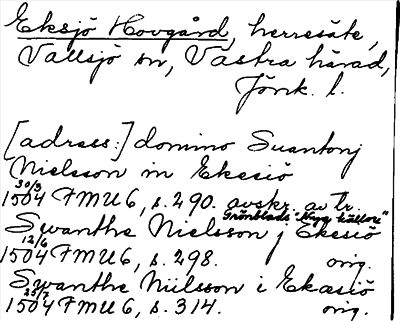 Eksjö Hovgård, herresäte,
Vallsjö sn, Västra härad,
Jönk. l.
[adress:] domino Suantonj
Nielsson in Ekesiö
30/3
1504 FMU 6, s. 290. avskr. av tr.
Grönblads "Nya källor"
Swanthe Nielsson j Ekesiö
12/6
1504 FMU 6, s. 298. orig.
Swanthe Niilsson i Ekasiö
25/7
1504 FMU 6, s. 314. orig.